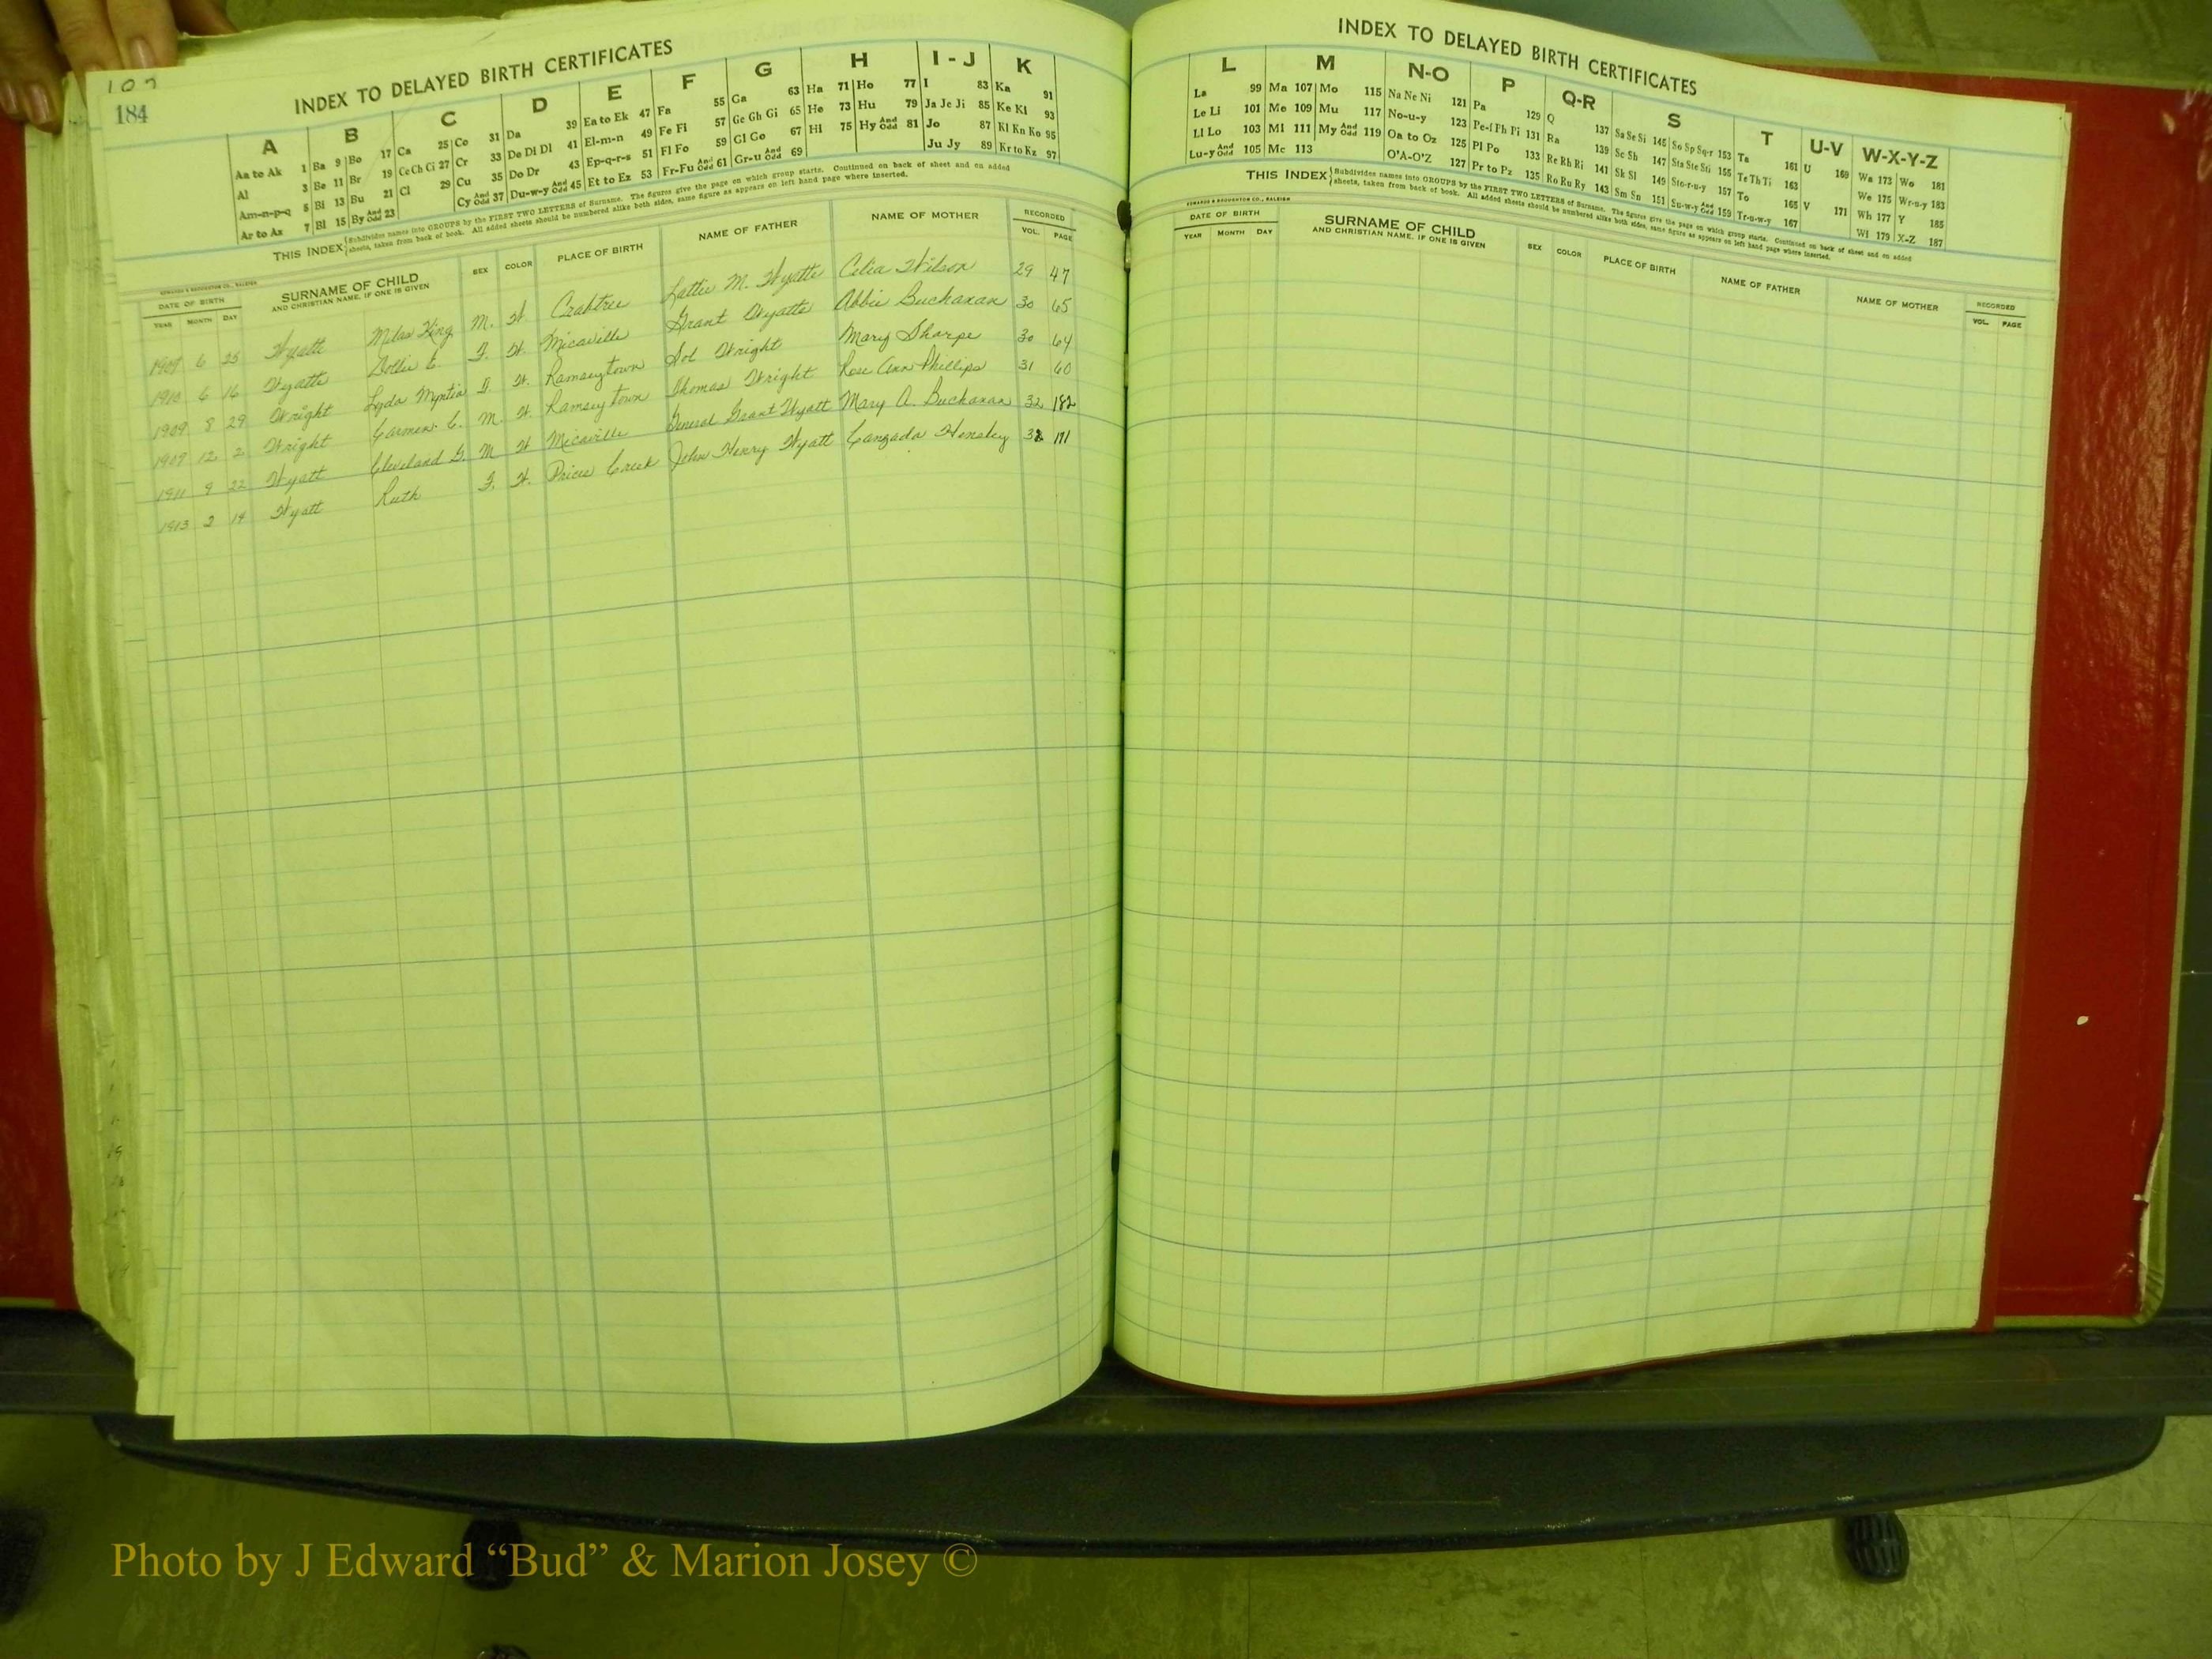 184
INDEX TO DELAYED BIRTH CERTIFICATES
A B C D E F G H I - J K
Aa to Ak 1 Ba 9 Bo 17 Ca 25 Co 31 Da 39 Ea to Ek 47 Fa 55 Ga 63 Ha 71 Ho 77 I 83 Ka 91
Al 3 Be 11 Br 19 Ce Ch Ci 27 Cr 33 De Di Dl 41 El-m-n 49 Fe Fi 57 Ge Gh Gi 65 He 73 Hu 79 Ja Je Ji 85 Ke Kl 93
Am-n-p-q 5 Bi 13 Bu 21 Cl 29 Cu 35 Do Dr 43 Ep-q-r-s 51 Fl Fo 59 Gl Go 67 Hi 75 Hy And Odd 81 Jo 87 Kl Kn Ko 95
Ar to Az 7 Bl 15 By And Odd 23 Cy And Odd 37 Du-w-y And Odd 45 Et to Ez 53 Fr-Fu And Odd 61 Gr-u And Odd 69 Ju Jy 89 Kr to Kz 97
THIS INDEX Subdivides names into GROUPS by the FIRST TWO LETTERS of Surname. The figures give the page on which group starts. Continued on back of sheet and on added
sheets, taken from back of book. All added sheets should be numbered alike both sides, same figure as appears on left hand page where inserted.
EDWARDS & BROUGHTON CO., RALEIGH
DATE OF BIRTH SURNAME OF CHILD SEX COLOR PLACE OF BIRTH NAME OF FATHER NAME OF MOTHER RECORDED
YEAR MONTH DAY AND CHRISTIAN NAME, IF ONE IS GIVEN VOL. PAGE
1907 6 25 Wyatt Milas King M. W. Crabtree Lattie M. Wyatt Celia Wilson 29 47
1910 6 16 Wyatt Dollie E. F. W. Micaville Grant Wyatt Abbie Buchanan 30 65
1909 8 29 Wright Lyda Myrtia F. W. Ramseytown Sol Wright Mary Sharpe 30 64
1909 12 2 Wright Carmen C. M. W. Ramseytown Thomas Wright Rose Ann Phillips 31 60
1911 9 22 Wyatt Cleveland G. M W Micaville General Grant Wyatt Mary A. Buchanan 32 182
1913 2 14 Wyatt Ruth F. W. Prices Creek John Henry Wyatt Canzada Hensley 171
INDEX TO DELAYED BIRTH CERTIFICATES
L M N-O P Q-R S T U-V W-X-Y-Z
La 99 Ma 107 Mo 115 Na Ne Ni 121 Pa 129 Q 137 Sa Se Si 145 So Sp Sq-r 153 Ta 161 U 169 Wa 173 Wo 181
Le Li 101 Me 109 Mu 117 No-u-y 123 Pe-f Ph Pi 131 Ra 139 Sc Sh 147 Sta Ste Sti 155 Te Th Ti 163 We 175 Wr-u-y 183
Ll Lo 103 Mi 111 My And Odd 119 Oa to Oz 125 Pl Po 133 Re Rh Ri 141 Sk Sl 149 Sto-r-u-y 157 To 165 V 171 Wh 177 Y 185
Lu-y And Odd 105 Mc 113 O'A-O'Z 127 Pr to Pz 135 Ro Ru Ry 143 Sm Sn 151 Su-w-y And Odd 159 Tr-u-w-y 167 Wi 179 X-Z 187
THIS INDEX Subdivides names into GROUPS by the FIRST TWO LETTERS of Surname. The figures give the page on which group starts. Continued on back of sheet and on added
sheets, taken from back of book. All added sheets should be numbered alike both sides, same figure as appears on left hand page where inserted.
EDWARDS & BROUGHTON CO., RALEIGH
DATE OF BIRTH SURNAME OF CHILD SEX COLOR PLACE OF BIRTH NAME OF FATHER NAME OF MOTHER RECORDED
YEAR MONTH DAY AND CHRISTIAN NAME, IF ONE IS GIVEN VOL. PAGE
Photo by J Edward “Bud” & Marion Josey ©